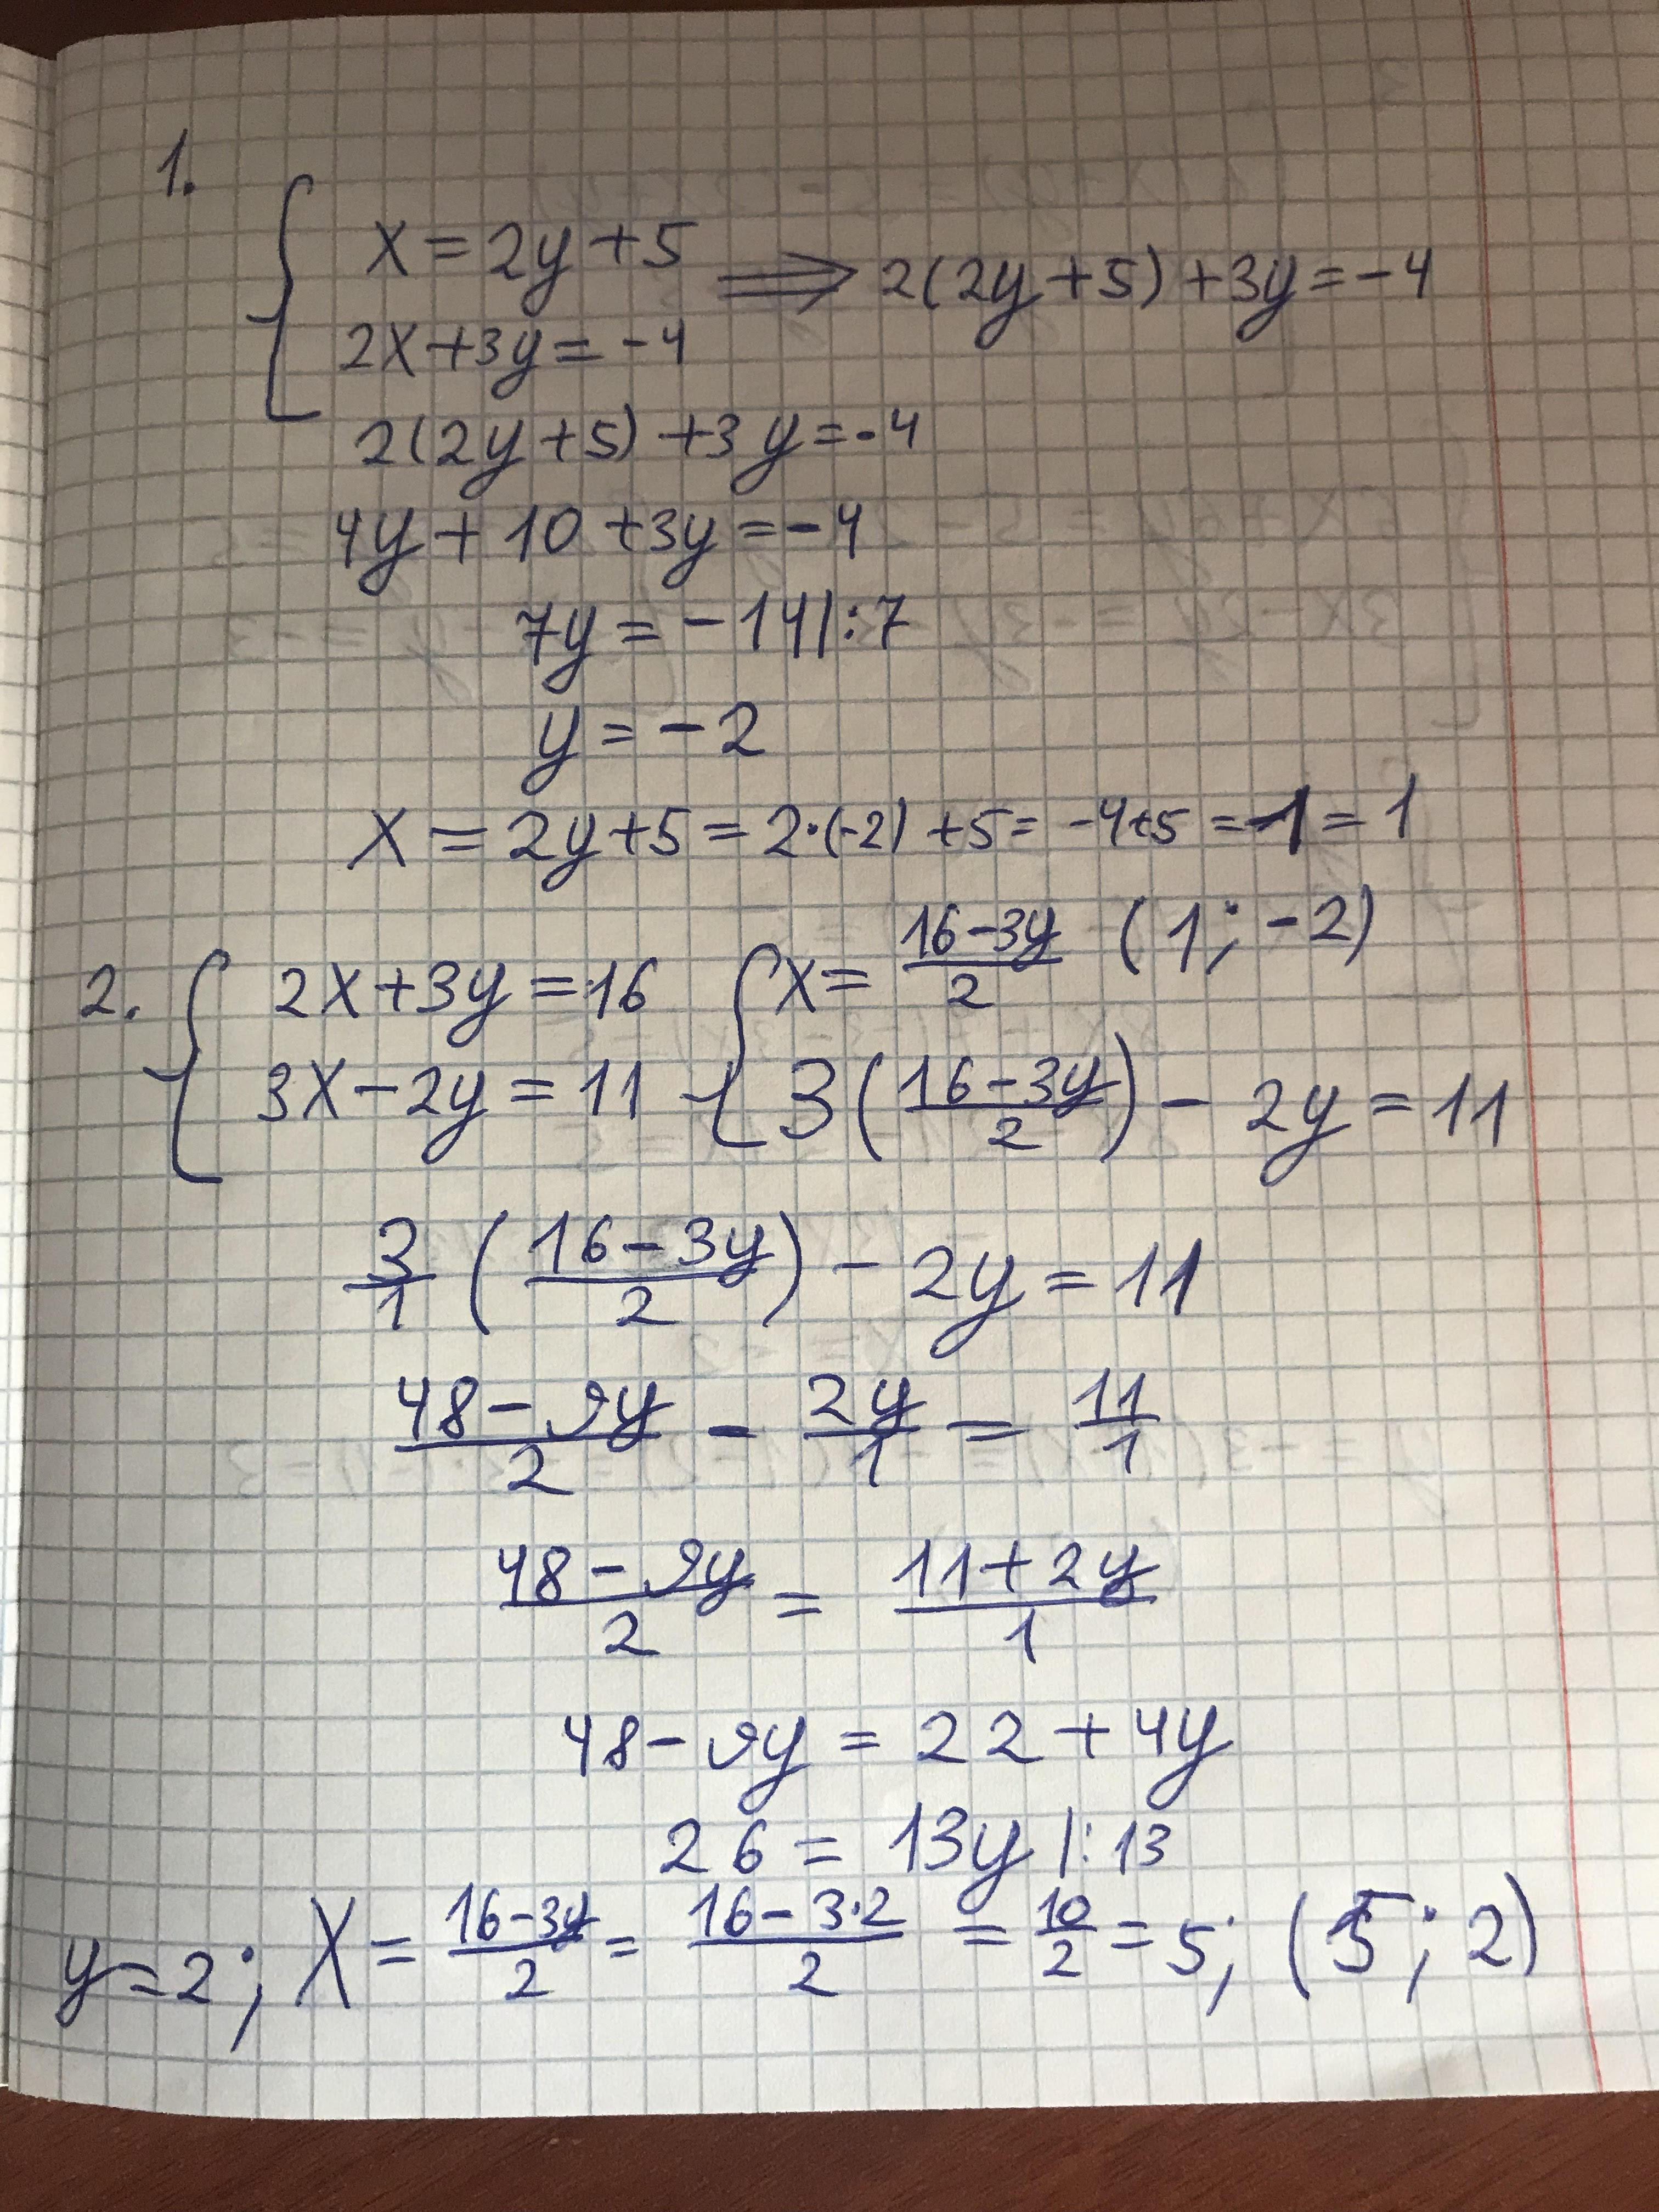 1.
{ x = 2y + 5 ⟹ 2(2y + 5) + 3y = -4
2x + 3y = -4
2(2y + 5) + 3y = -4
4y + 10 + 3y = -4
7y = -14 |:7
y = -2
x = 2y + 5 = 2·(-2) + 5 = -4 + 5 = -1 = 1
(1; -2)
2. { 2x + 3y = 16 { x = (16 - 3y)/2
3x - 2y = 11 3((16 - 3y)/2) - 2y = 11
3/1 ((16 - 3y)/2) - 2y = 11
(48 - 9y)/2 - 2y/1 = 11/1
(48 - 9y)/2 = (11 + 2y)/1
48 - 9y = 22 + 4y
26 = 13y |:13
y = 2; x = (16 - 3y)/2 = (16 - 3·2)/2 = 10/2 = 5; (5; 2)